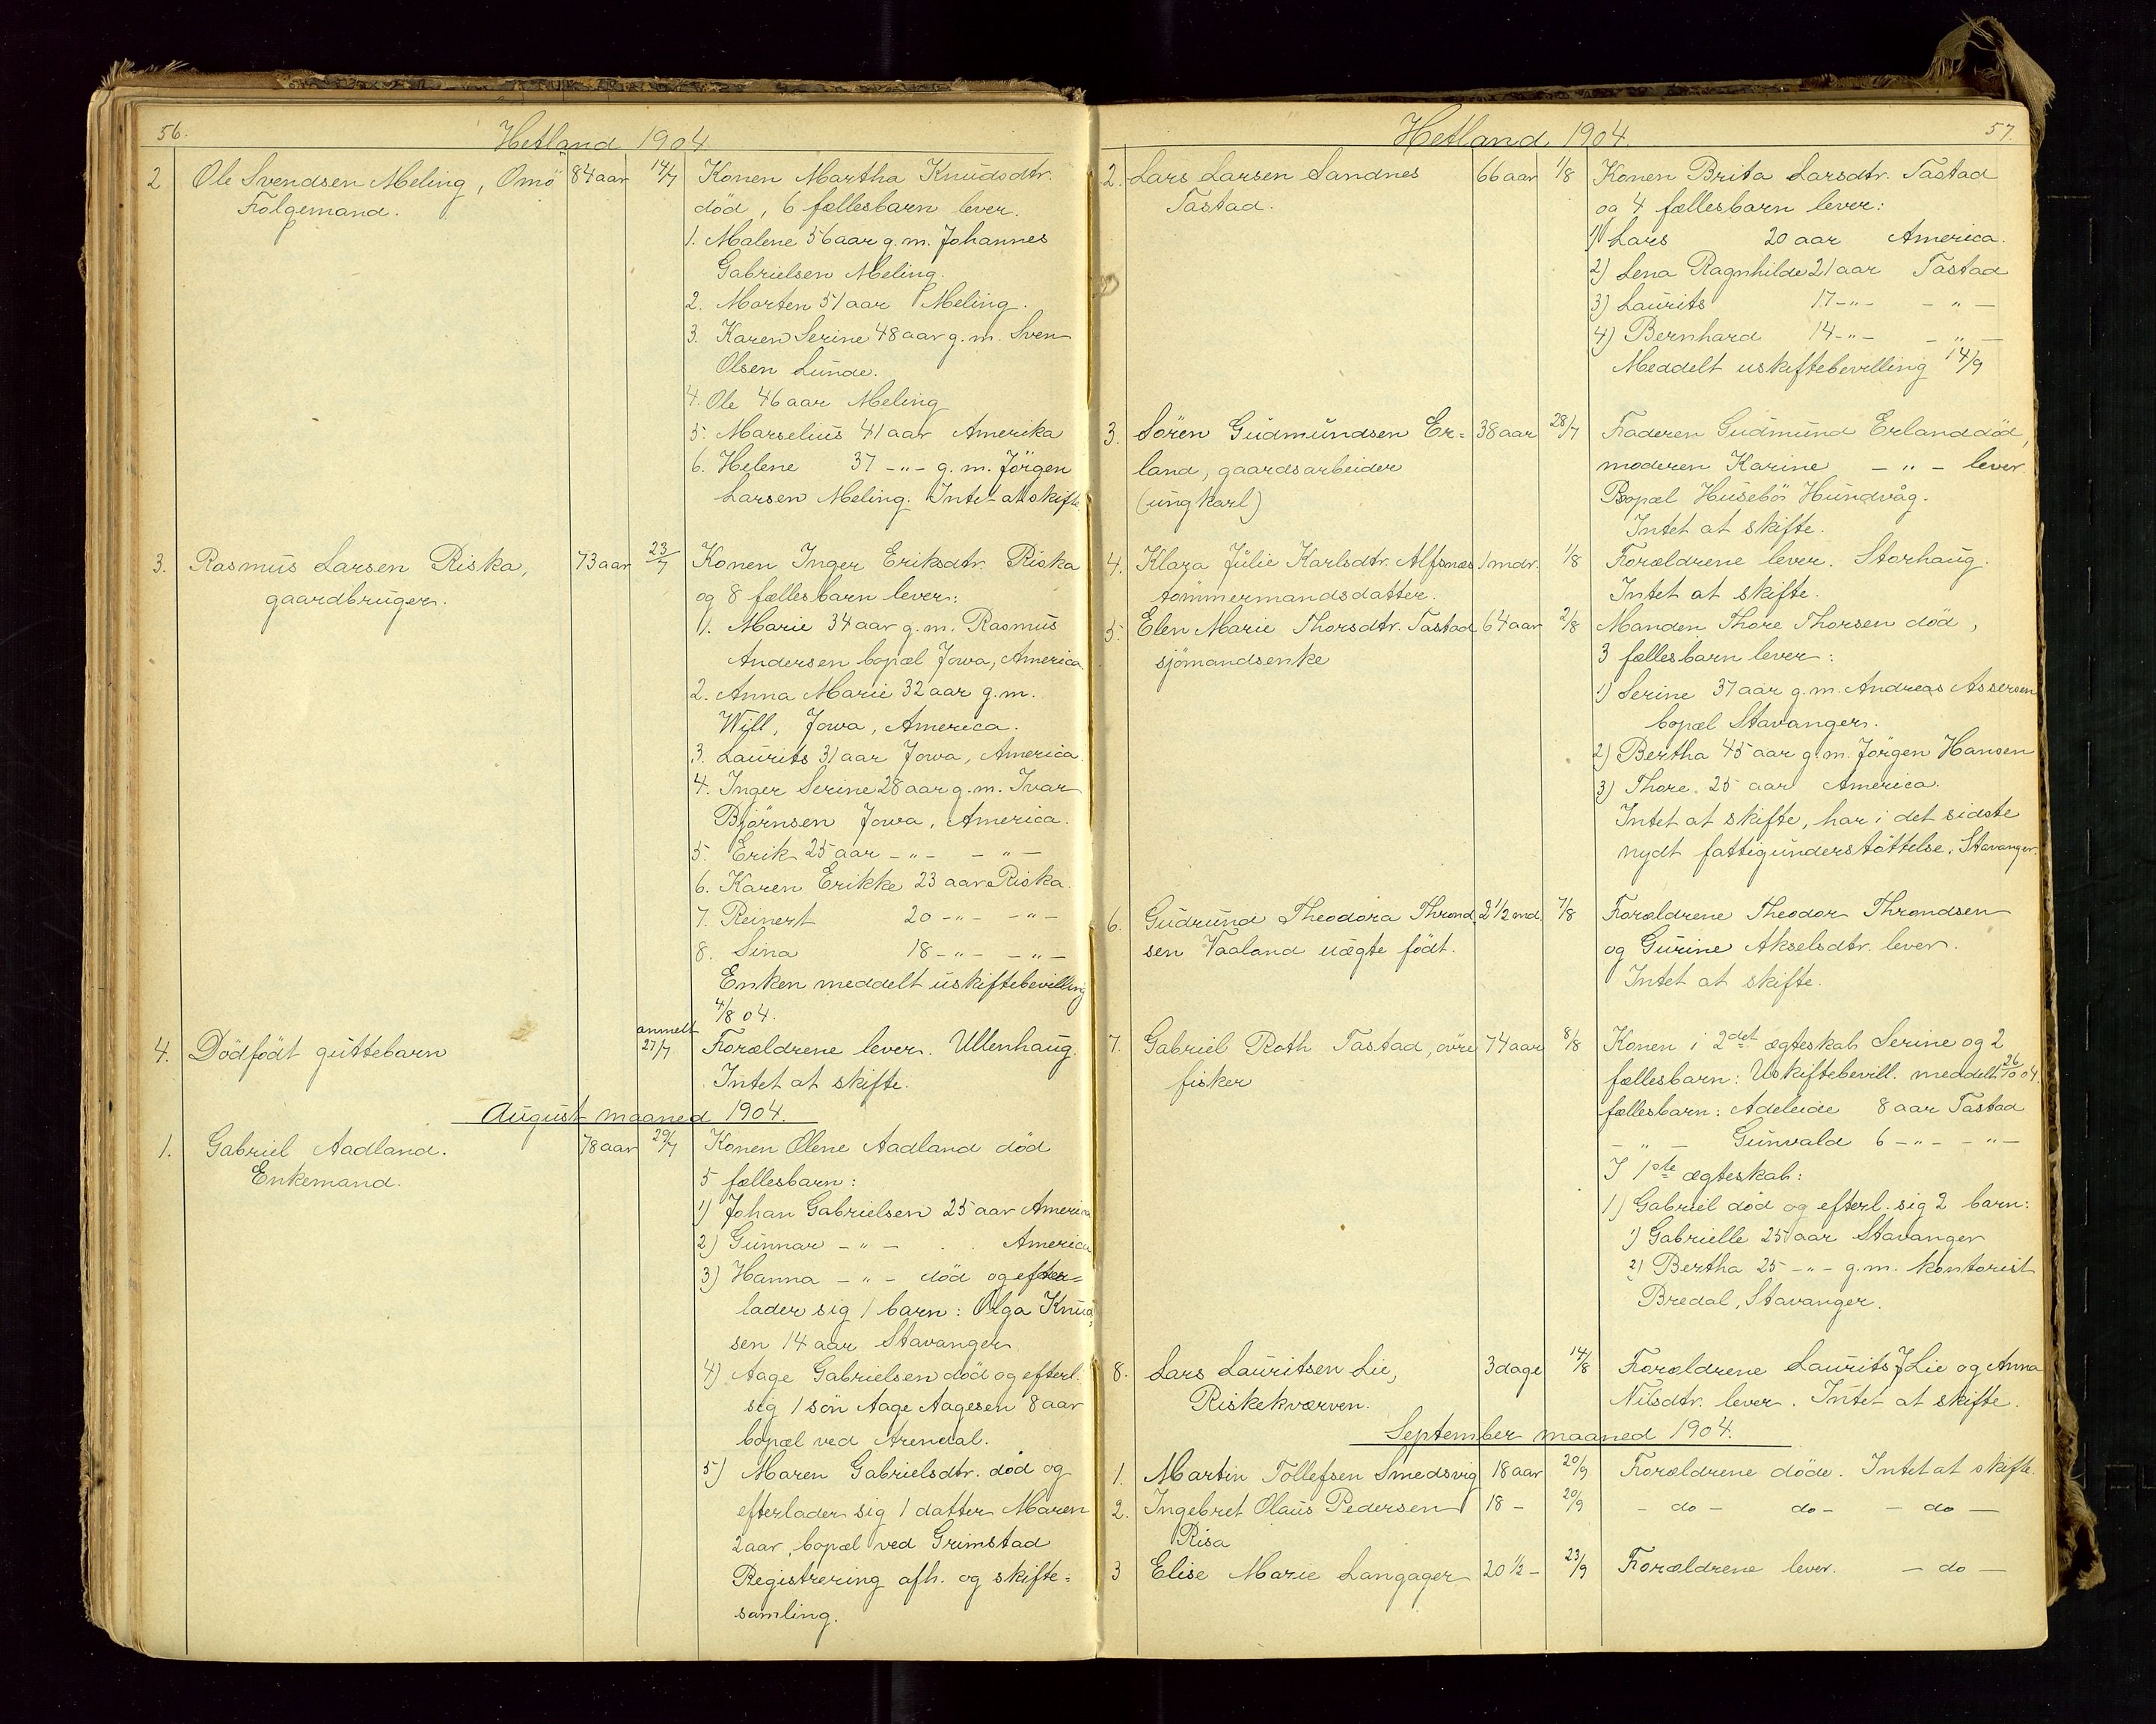 56.
Hetland 1904.
2 Ole Svendsen Meling, Omö 84 aar 14/7 Konen Martha Knudsdtr.
Folgemand. död, 6 fællesbarn lever.
1. Malene 56 aar g. m. Johannes
Gabrielsen Meling.
2. Morten 51 aar Meling.
3. Karen Serine 48 aar g. m. Sven
Olsen Lunde.
4. Ole 46 aar Meling
5. Marselius 41 aar Amerika
6. Helene 37 -"- g. m. Jörgen
Larsen Meling. Intet at skifte.
3. Rasmus Larsen Riska, 73 aar 23/7 Konen Inger Eriksdtr. Riska
gaardbruger. og 8 fællesbarn lever:
1. Marie 34 aar g. m. Rasmus
Andersen bopæl Jowa, America.
2. Anna Marie 32 aar g. m.
Will, Jowa, America.
3. Laurits 31 aar Jowa, America.
4. Inger Serine 28 aar g. m. Ivar
Björnsen Jowa, America.
5. Erik 25 aar -"- -"-
6. Karen Erikke 23 aar Riska.
7. Reinert 20 -"- -"-
8. Sina 18 -"- -"-
Enken meddelt uskiftebevilling
4/8 04.
4. Dödfödt guttebarn anmelt 27/7 Forældrene lever. Ullenhaug.
Intet at skifte.
August maaned 1904.
1. Gabriel Aadland. 78 aar 29/7 Konen Olene Aadland död
Enkemand. 5 fællesbarn:
1) Johan Gabrielsen 25 aar America
2) Gunnar -"- America
3) Hanna -"- död og efter=
lader sig 1 barn: Olga Knud
sen 14 aar Stavanger
4) Aage Gabrielsen död og efterl.
sig 1 sön Aage Aagesen 8 aar
bopæl ved Arendal.
5) Maren Gabrielsdtr. död og
efterlader sig 1 datter Maren
2 aar, bopæl ved Grimstad
Registrering afh. og skifte=
samling.
57.
Hetland 1904.
2. Lars Larsen Sandnes 66 aar 1/8 Konen Brita Larsdtr. Tastad
Tastad. og 4 fællesbarn lever:
1) Lars 20 aar America.
2) Lena Ragnhilde 21 aar Tastad
3) Laurits 17 -"- -"-
4) Bernhard 14 -"- -"-
Meddelt uskiftebevilling 14/9
3. Sören Gudmundsen Er= 38 aar 28/7 Faderen Gudmund Erland död,
land, gaardsarbeider moderen Karine -"- lever
(ungkarl) Bopæl Husebö Hundvåg.
Intet at skifte.
4. Klara Julie Karlsdtr. Alfsnes 1 mdr. 1/8 Forældrene lever. Storhaug.
tömmermandsdatter. Intet at skifte.
5. Elen Marie Thorsdtr. Tastad 64 aar 2/8 Manden Thore Thorsen död,
sjömandsenke 3 fællesbarn lever:
1) Serine 37 aar g. m. Andreas Assersen
bopæl Stavanger.
2) Bertha 45 aar g. m. Jörgen Hansen
3) Thore 25 aar America.
Intet at skifte, har i det sidste
nydt fattigunderstöttelse, Stavanger.
6. Gudrund Theodora Thrond 2 1/2 md. 7/8 Forældrene Theodor Throndsen
sen Vaaland uægte födt. og Gurine Akselsdtr. lever.
Intet at skifte.
7. Gabriel Roth Tastad, övre 74 aar 8/8 Konen i 2det ægteskab Serine og 2
fisker fællesbarn: Uskiftebevill. meddelt 26/10 04.
fællesbarn: Adeleide 8 aar Tastad
-"- Gunvald 6 -"- -"-
I 1ste ægteskab:
1) Gabriel död og efterl. sig 2 barn:
1) Gabrielle 25 aar Stavanger
2) Bertha 25 -"- g. m. kontorist
Bredal, Stavanger.
8. Lars Lauritsen Lie, 3 dage 14/8 Forældrene Laurits J Lie og Anna
Riskekværven. Nilsdtr. lever. Intet at skifte.
September maaned 1904.
1. Martin Tollefsen Smedsvig 18 aar 20/9 Forældrene döde. Intet at skifte.
2. Ingebret Olaus Pedersen 18 - 20/9 - do - do - - do -
Risa
3 Elise Marie Langager 20 1/2 - 23/9 Forældrene lever. - do -